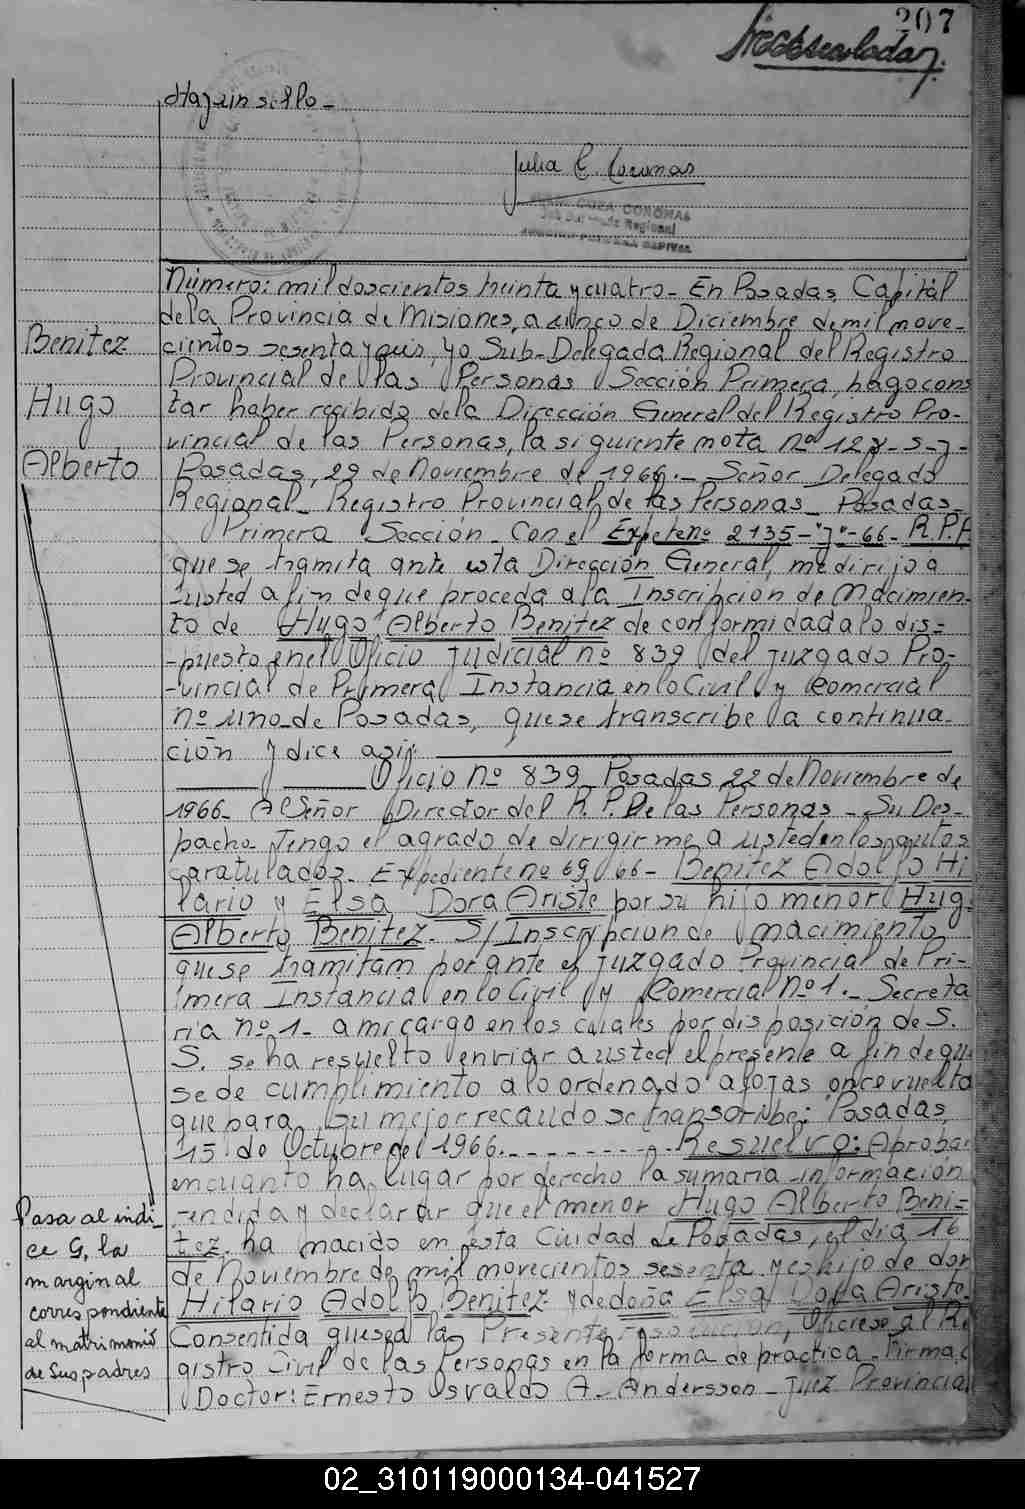 207
Hay un sello_
Julia C. Coconas
CORONAS
Sub Delegada Regional
Número: mil doscientos treinta y cuatro_ En Posadas, Capital
de la Provincia de Misiones, a cinco de Diciembre de mil nove-
cientos sesenta y seis, yo Sub-Delegada Regional del Registro
Provincial de las Personas Sección Primera, hago cons
tar haber recibido de la Dirección General del Registro Pro-
vincial de las Personas, la siguiente nota nº
Posadas, 29 de Noviembre de 1966._ Señor Delegado
Regional_ Registro Provincial de las Personas_ Posadas_
Primera Sección_ Con el Expete nº 2135-"J"-66_ R.P.P
que se tramita ante esta Dirección General, me dirijo a
usted a fin de que proceda a la Inscripcion de Nacimien-
to de Hugo Alberto Benitez de conformidad a lo dis=
-puesto en el Oficio Judicial nº 839 del Juzgado Pro-
-vincial de Primera Instancia en lo Civil y Comercial
nº uno_de Posadas, que se transcribe a continua-
ción y dice asi:
Oficio nº 839_ Posadas 22 de Noviembre de
1966_ Al Señor Director del R.P. De las Personas_ Su Des-
pacho_ Tengo el agrado de dirigirme a usted en los autos
caratulados_ Expediente nº 69 66_ Benitez Adolfo Hi
lario y Elsa Dora Aristo por su hijo menor Hugo
Alberto Benitez_ S/ Inscripcion de nacimiento
que se tramitan por ante el Juzgado Provincial de Pri-
mera Instancia en lo Civil y Comercial Nº 1._ Secreta
ria nº 1_ a mi cargo en los cuales por disposición de S.
S. se ha resuelto enviar a usted el presente a fin de que
se de cumplimiento a lo ordenado a fojas once vuelta
que para su mejor recaudo se transcribe: Posadas,
15 de Octubre del 1966.--------- Resuelvo: Aprobar
en cuanto ha lugar por derecho la sumaria información
rendida y declarar que el menor Hugo Alberto Beni=
tez_ ha nacido en esta Ciudad de Posadas, el dia 16
de Noviembre de mil novecientos sesenta y es hijo de don
Hilario Adolfo Benitez y de doña Elsa Dora Aristo.
Consentida que sea la Presente resolucion, Oficiese al Re
gistro Civil de las Personas en la forma de practica_ Firmado
Doctor: Ernesto Osvaldo A. Andersson_ Juez Provincial
Benitez
Hugo
Alberto
Pasa al indi_
ce G, la
marginal
correspondiente
al matrimonio
de sus padres
02_310119000134-041527